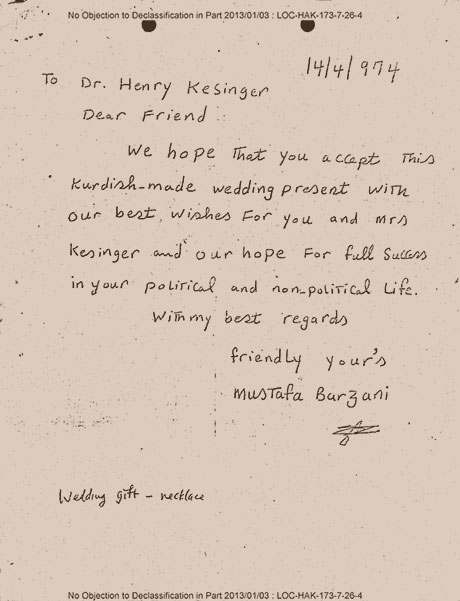 No Objection to Declassification in Part 2013/01/03 : LOC-HAK-173-7-26-4
14/4/974
To Dr. Henry Kesinger
Dear Friend :
We hope That you accept This
Kurdish-made wedding present with
our best wishes For you and Mrs
Kesinger and our hope For full Success
in your political and non-political Life.
With my best regards
friendly your's
Mustafa Barzani
Wedding gift - necklace
No Objection to Declassification in Part 2013/01/03 : LOC-HAK-173-7-26-4